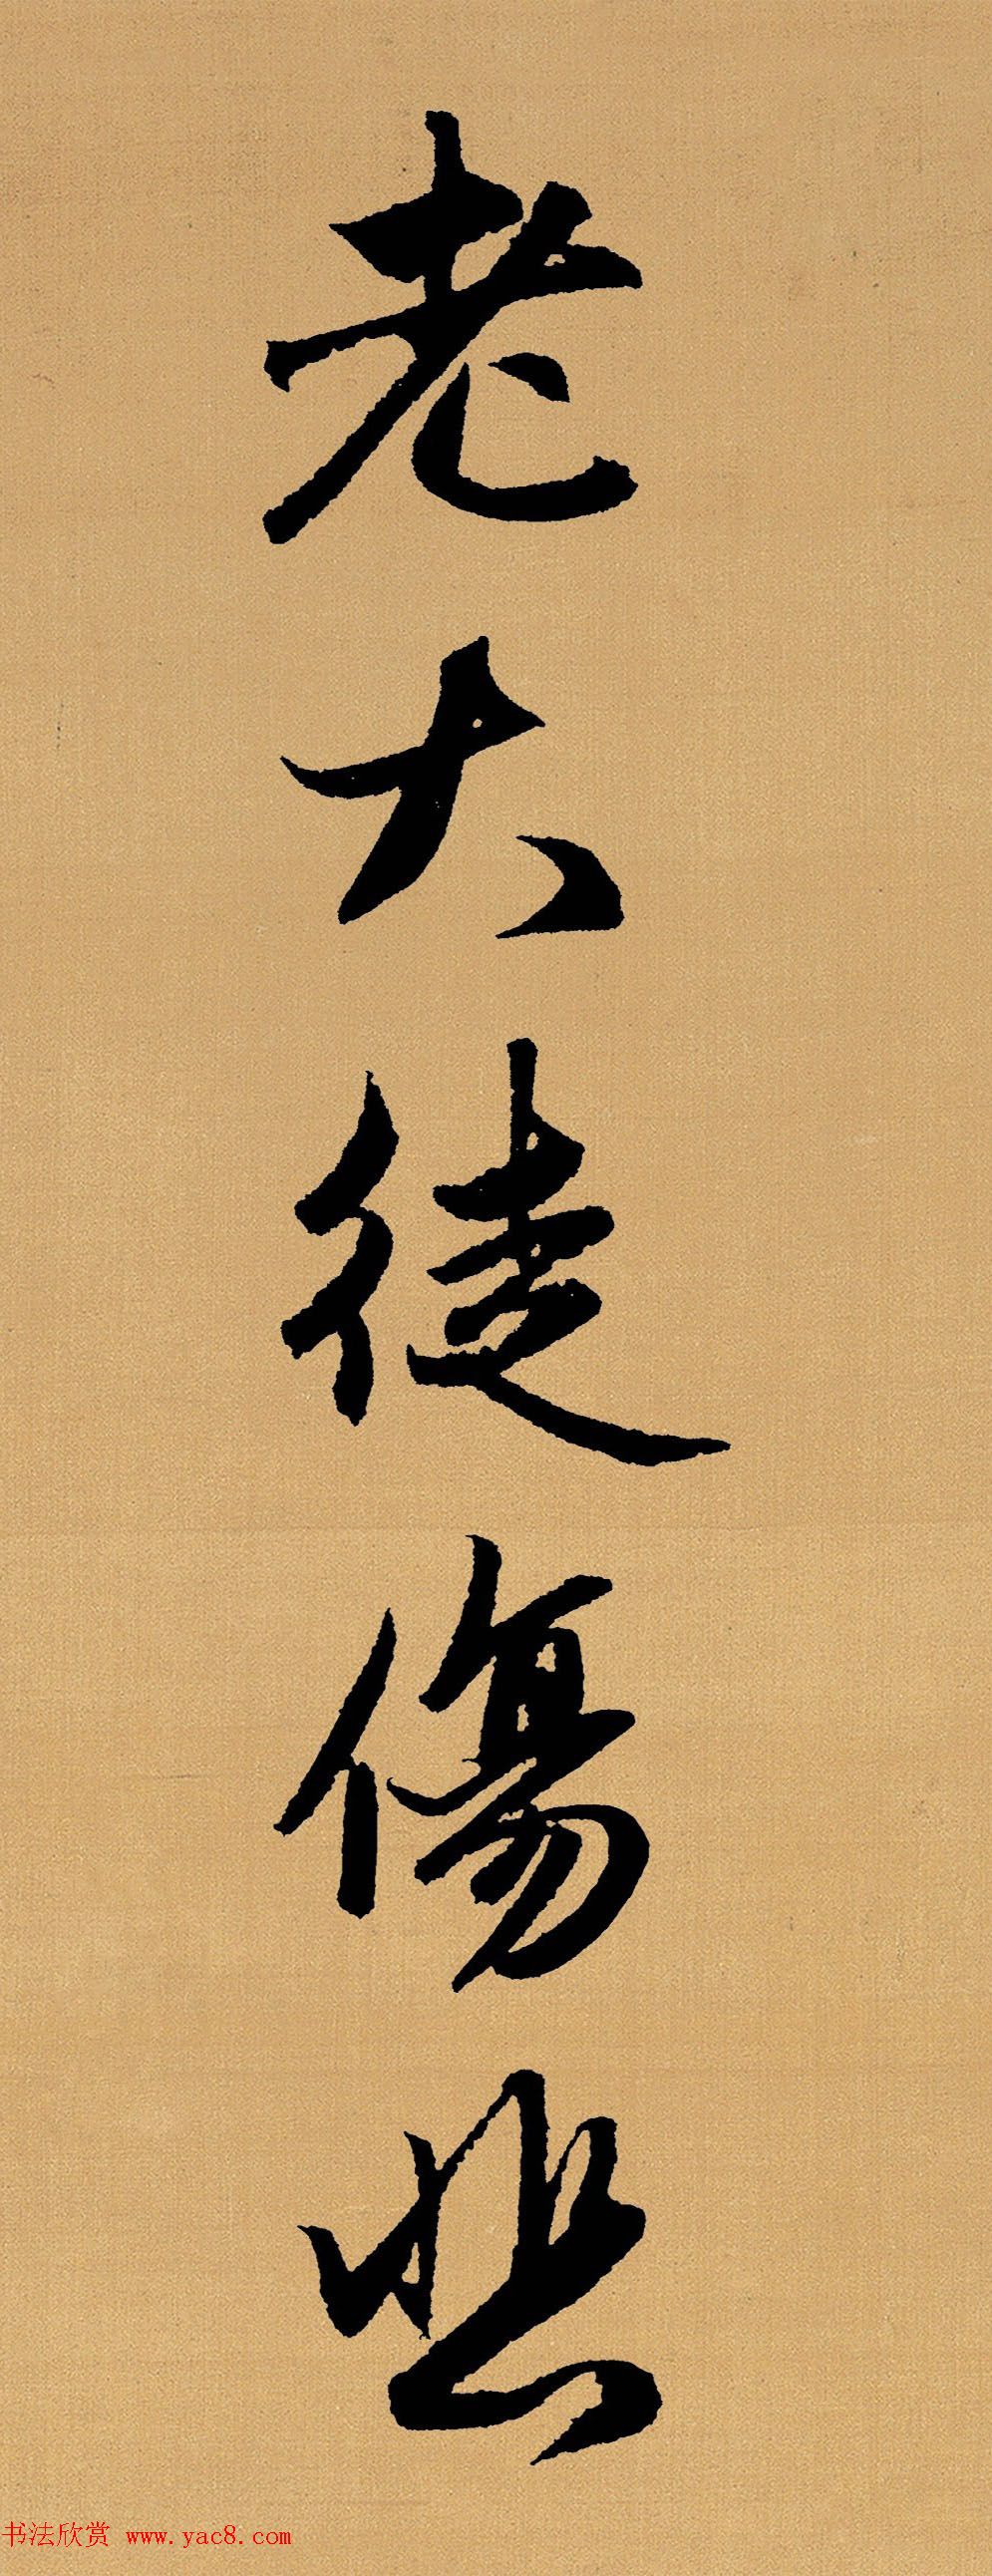 老大徒傷悲
书法欣赏 www.yac8.com